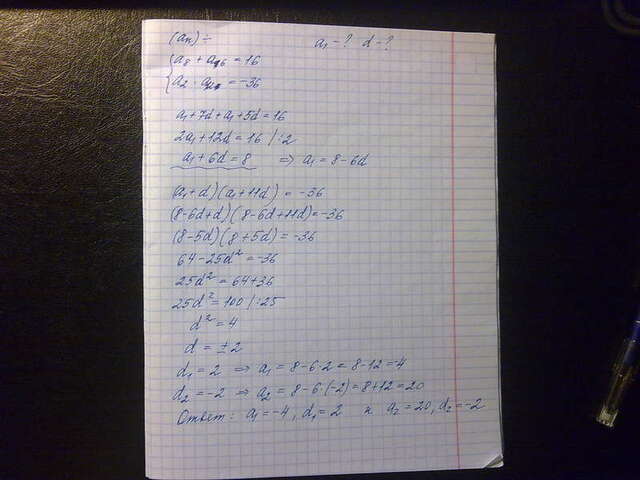 (an) ÷ a₁ - ? d - ?
a₈ + a₆ = 16
a₂ · a₁₂ = -36
a₁ + 7d + a₁ + 5d = 16
2a₁ + 12d = 16 /:2
a₁ + 6d = 8 => a₁ = 8 - 6d
(a₁ + d)(a₁ + 11d) = -36
(8 - 6d + d)(8 - 6d + 11d) = -36
(8 - 5d)(8 + 5d) = -36
64 - 25d² = -36
25d² = 64 + 36
25d² = 100 /:25
d² = 4
d = ±2
d₁ = 2 => a₁ = 8 - 6·2 = 8 - 12 = -4
d₂ = -2 => a₂ = 8 - 6·(-2) = 8 + 12 = 20
Ответ: a₁ = -4, d₁ = 2 и a₂ = 20, d₂ = -2